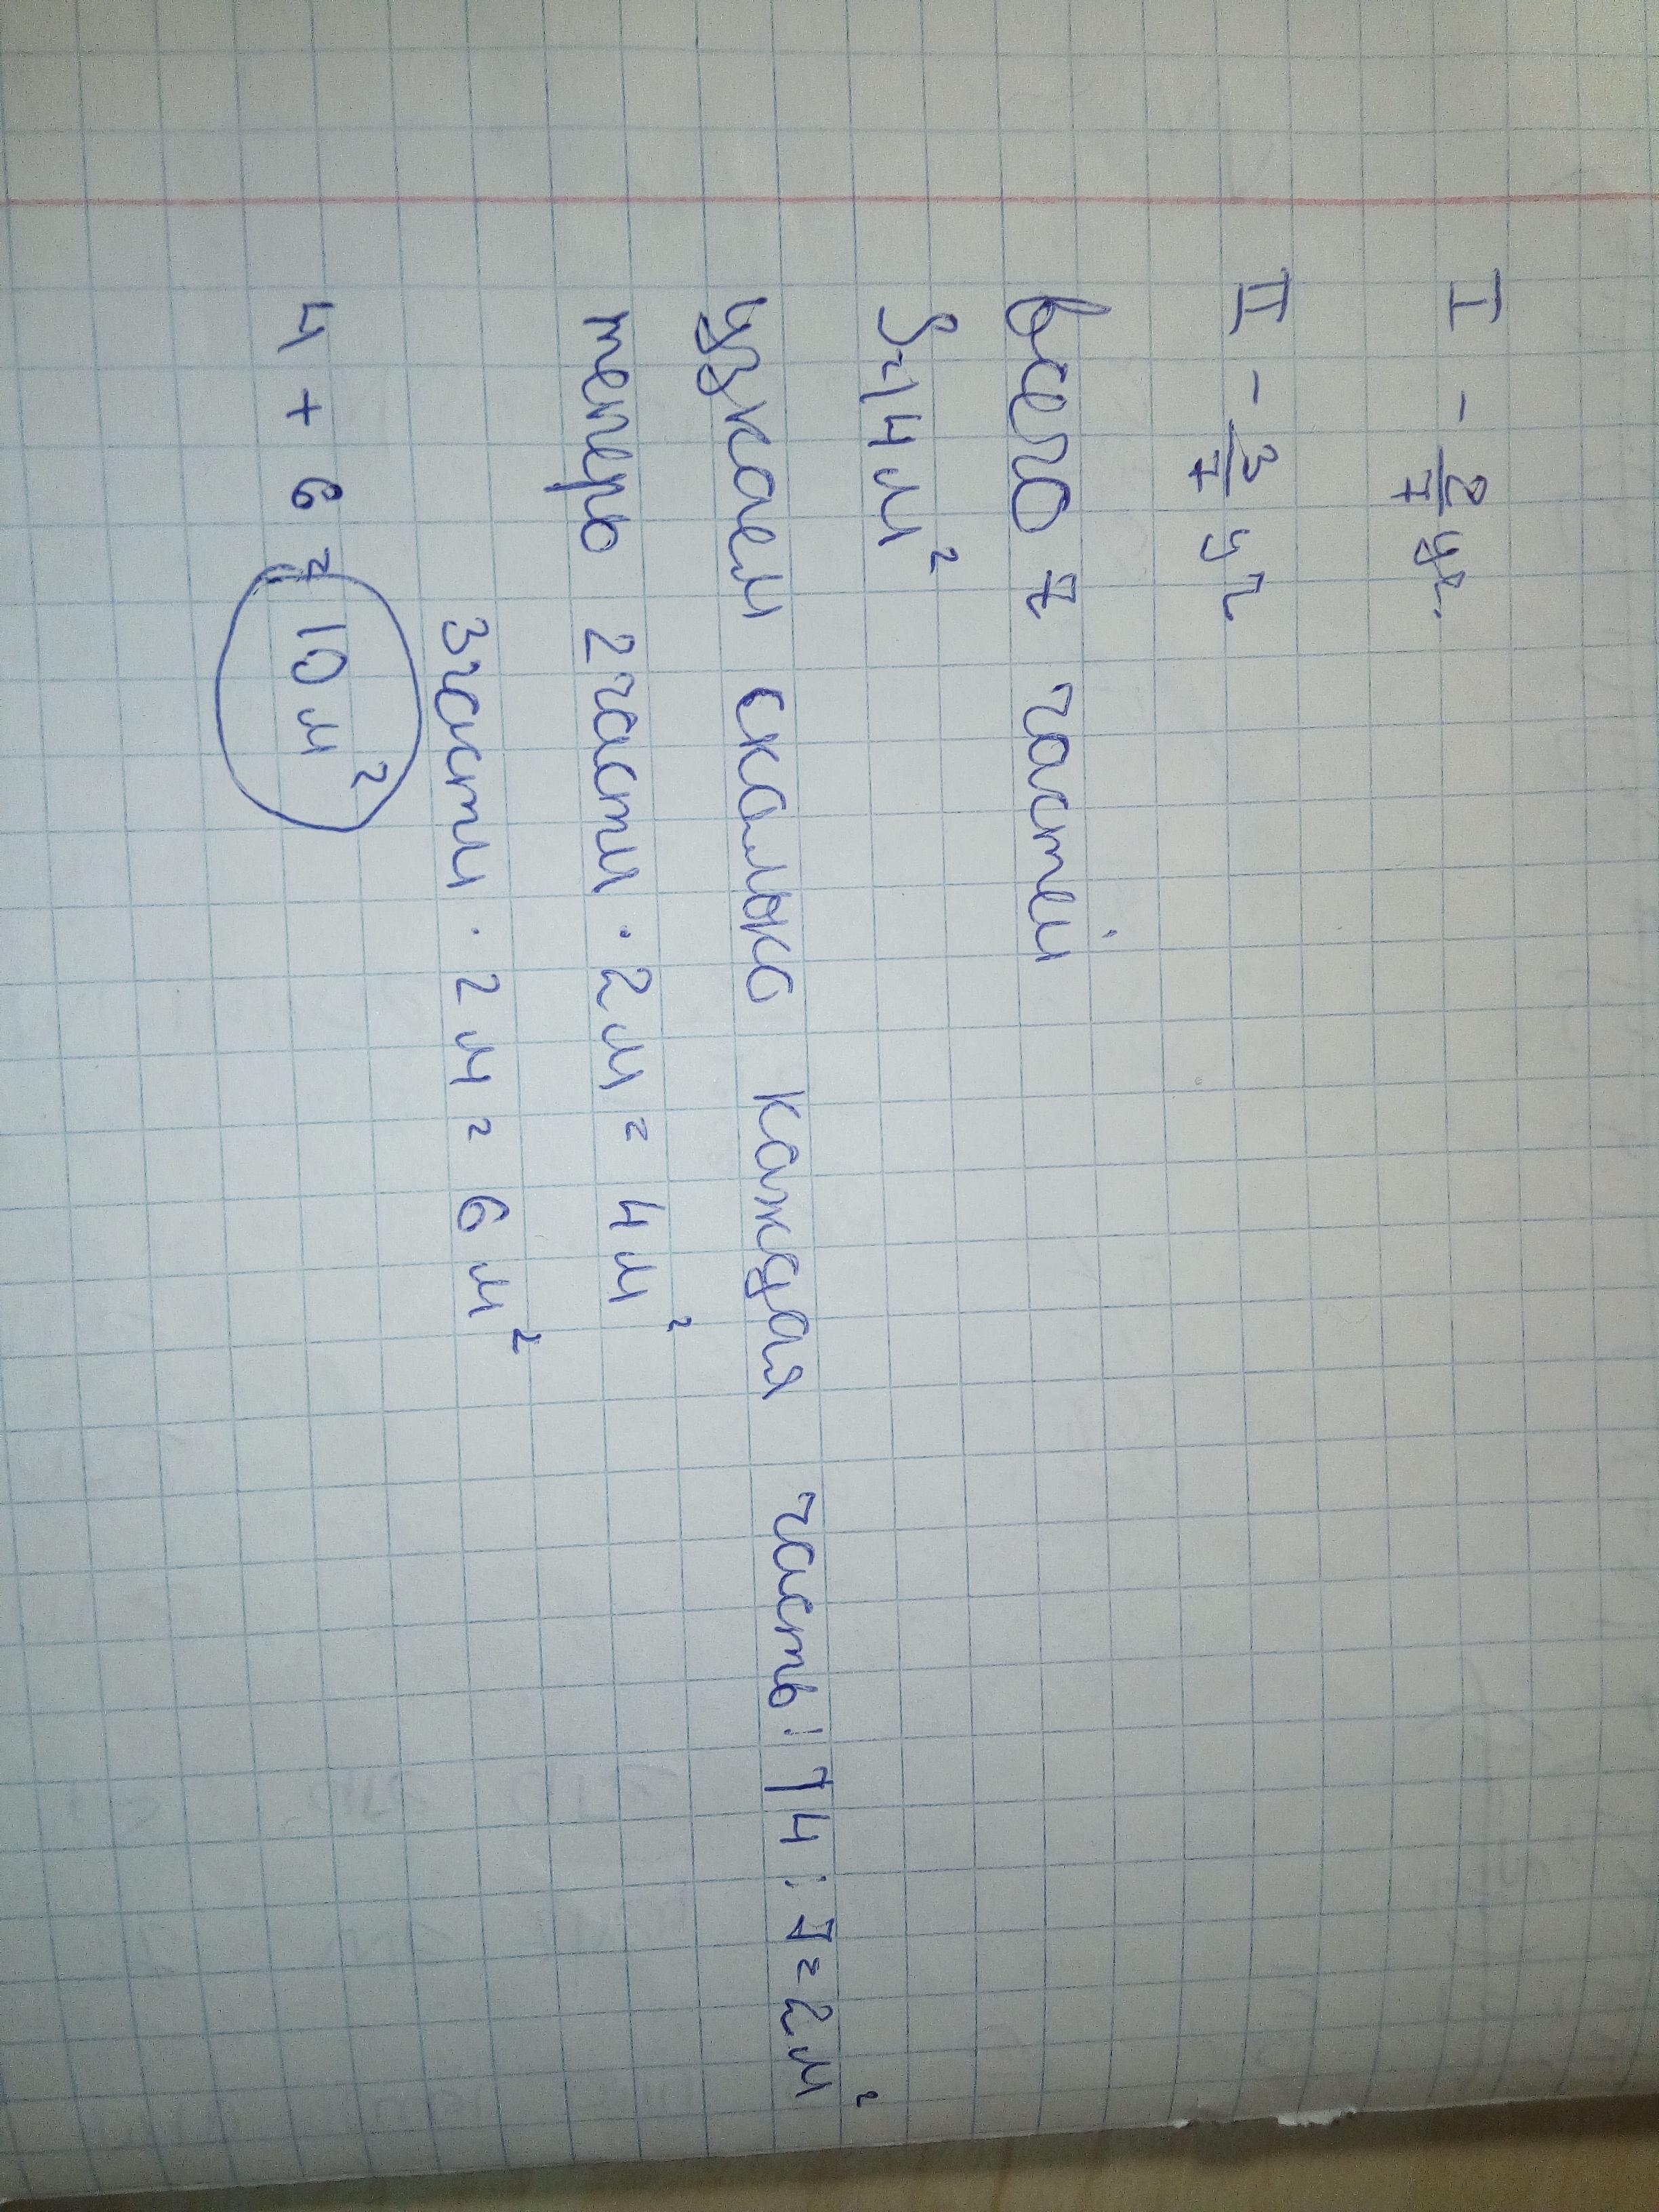 I - 2/7 уч.
II - 3/7 уч
Всего 7 частей
S=14 м²
узнаем сколько каждая часть: 14 : 7 = 2 м²
теперь 2 части · 2 м = 4 м²
3 части · 2 м = 6 м²
4 + 6 = 10 м²